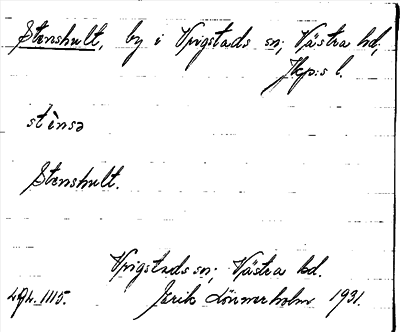 Stenshult, by i Vrigstads sn; Västra hd,
Jkp:s l.
stènsə
Stenshult.
Vrigstads sn; Västra hd.
Erik Lönnerholm 1931.